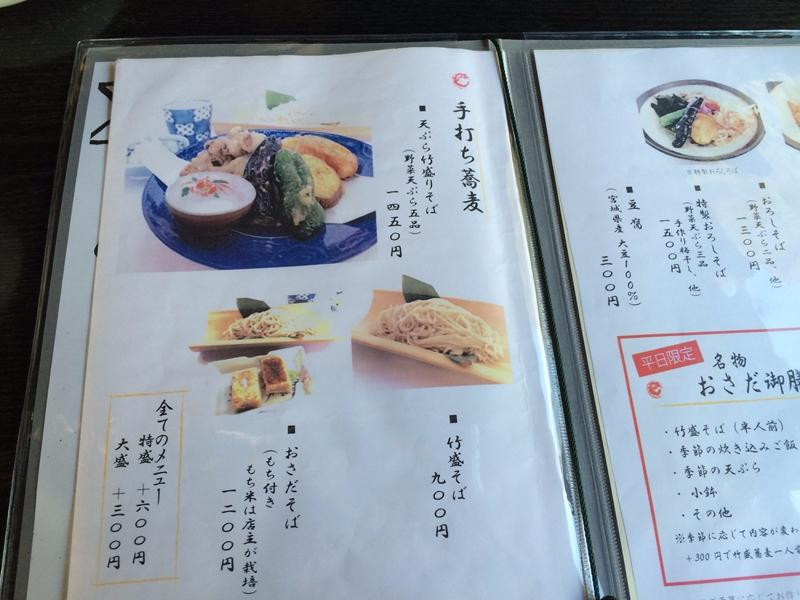 手打ち蕎麦
■ 天ぷら竹盛りそば
(野菜天ぷら五品)
一四五〇円
■ 竹盛そば
九〇〇円
■ おさだそば
(もち付き
もち米は店主が栽培)
一二〇〇円
全てのメニュー
特盛 +六〇〇円
大盛 +三〇〇円
※特製おろしそば
■ おろしそば
(野菜天ぷら二品、他)
一三〇〇円
■ 特製おろしそば
(野菜天ぷら三品
手作り梅干し、他)
一五〇〇円
■ 豆腐
(宮城県産 大豆100%)
三〇〇円
平日限定
名物
おさだ御膳
・竹盛そば(半人前)
・季節の炊き込みご飯
・季節の天ぷら
・小鉢
・その他
※季節に応じて内容が変わ
+300円で竹盛蕎麦一人前